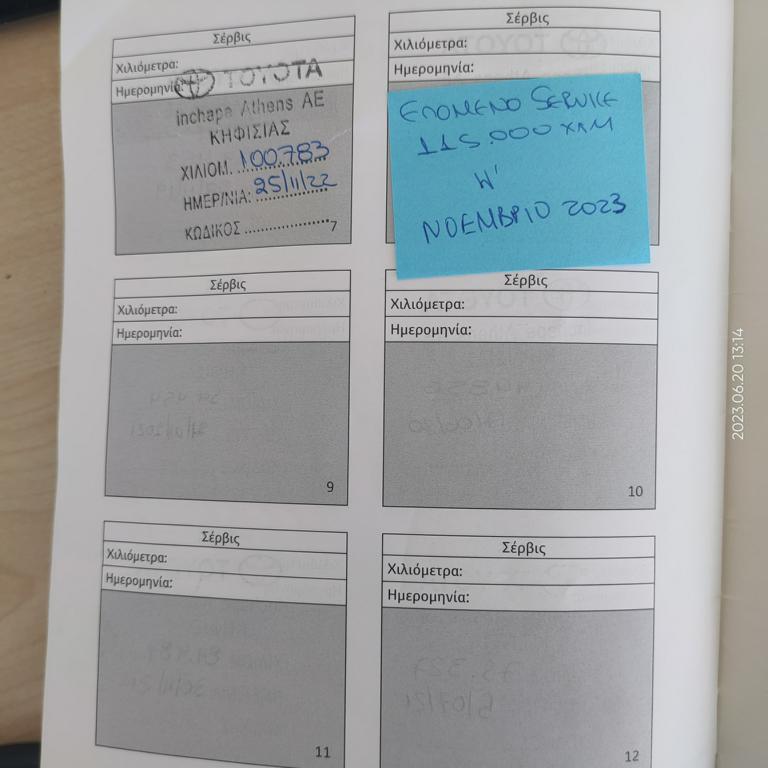 Σέρβις
Χιλιόμετρα:
Ημερομηνία
TOYOTA
inchape Athens AE
ΚΗΦΙΣΙΑΣ
ΧΙΛΙΟΜ. 100.783
ΗΜΕΡ/ΝΙΑ: 25/11/22
ΚΩΔΙΚΟΣ
7
Σέρβις
Χιλιόμετρα:
Ημερομηνία:
ΕΠΟΜΕΝΟ SERVICE
115.000 ΧΛΜ
Η'
ΝΟΕΜΒΡΙΟ 2023
Σέρβις
Χιλιόμετρα:
Ημερομηνία:
9
Σέρβις
Χιλιόμετρα:
Ημερομηνία:
10
Σέρβις
Χιλιόμετρα:
Ημερομηνία:
11
Σέρβις
Χιλιόμετρα:
Ημερομηνία:
12
2023.06.20 13:14